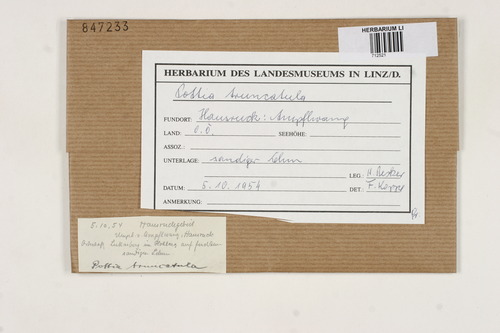 847233
HERBARIUM LI
712521
HERBARIUM DES LANDESMUSEUMS IN LINZ/D.
Pottia truncatula
FUNDORT: Hausruck: Ampflwang
LAND: O.Ö. SEEHÖHE:
ASSOZ.:
UNTERLAGE: sandiger Lehm
LEG.: H. Becker
DATUM: 5.10.1954 DET.: F. Koppe
ANMERKUNG:
5.10.54 Hausruckgebiet
Ampflwang, Hausruck
auf
sandigem Lehm
Pottia truncatula